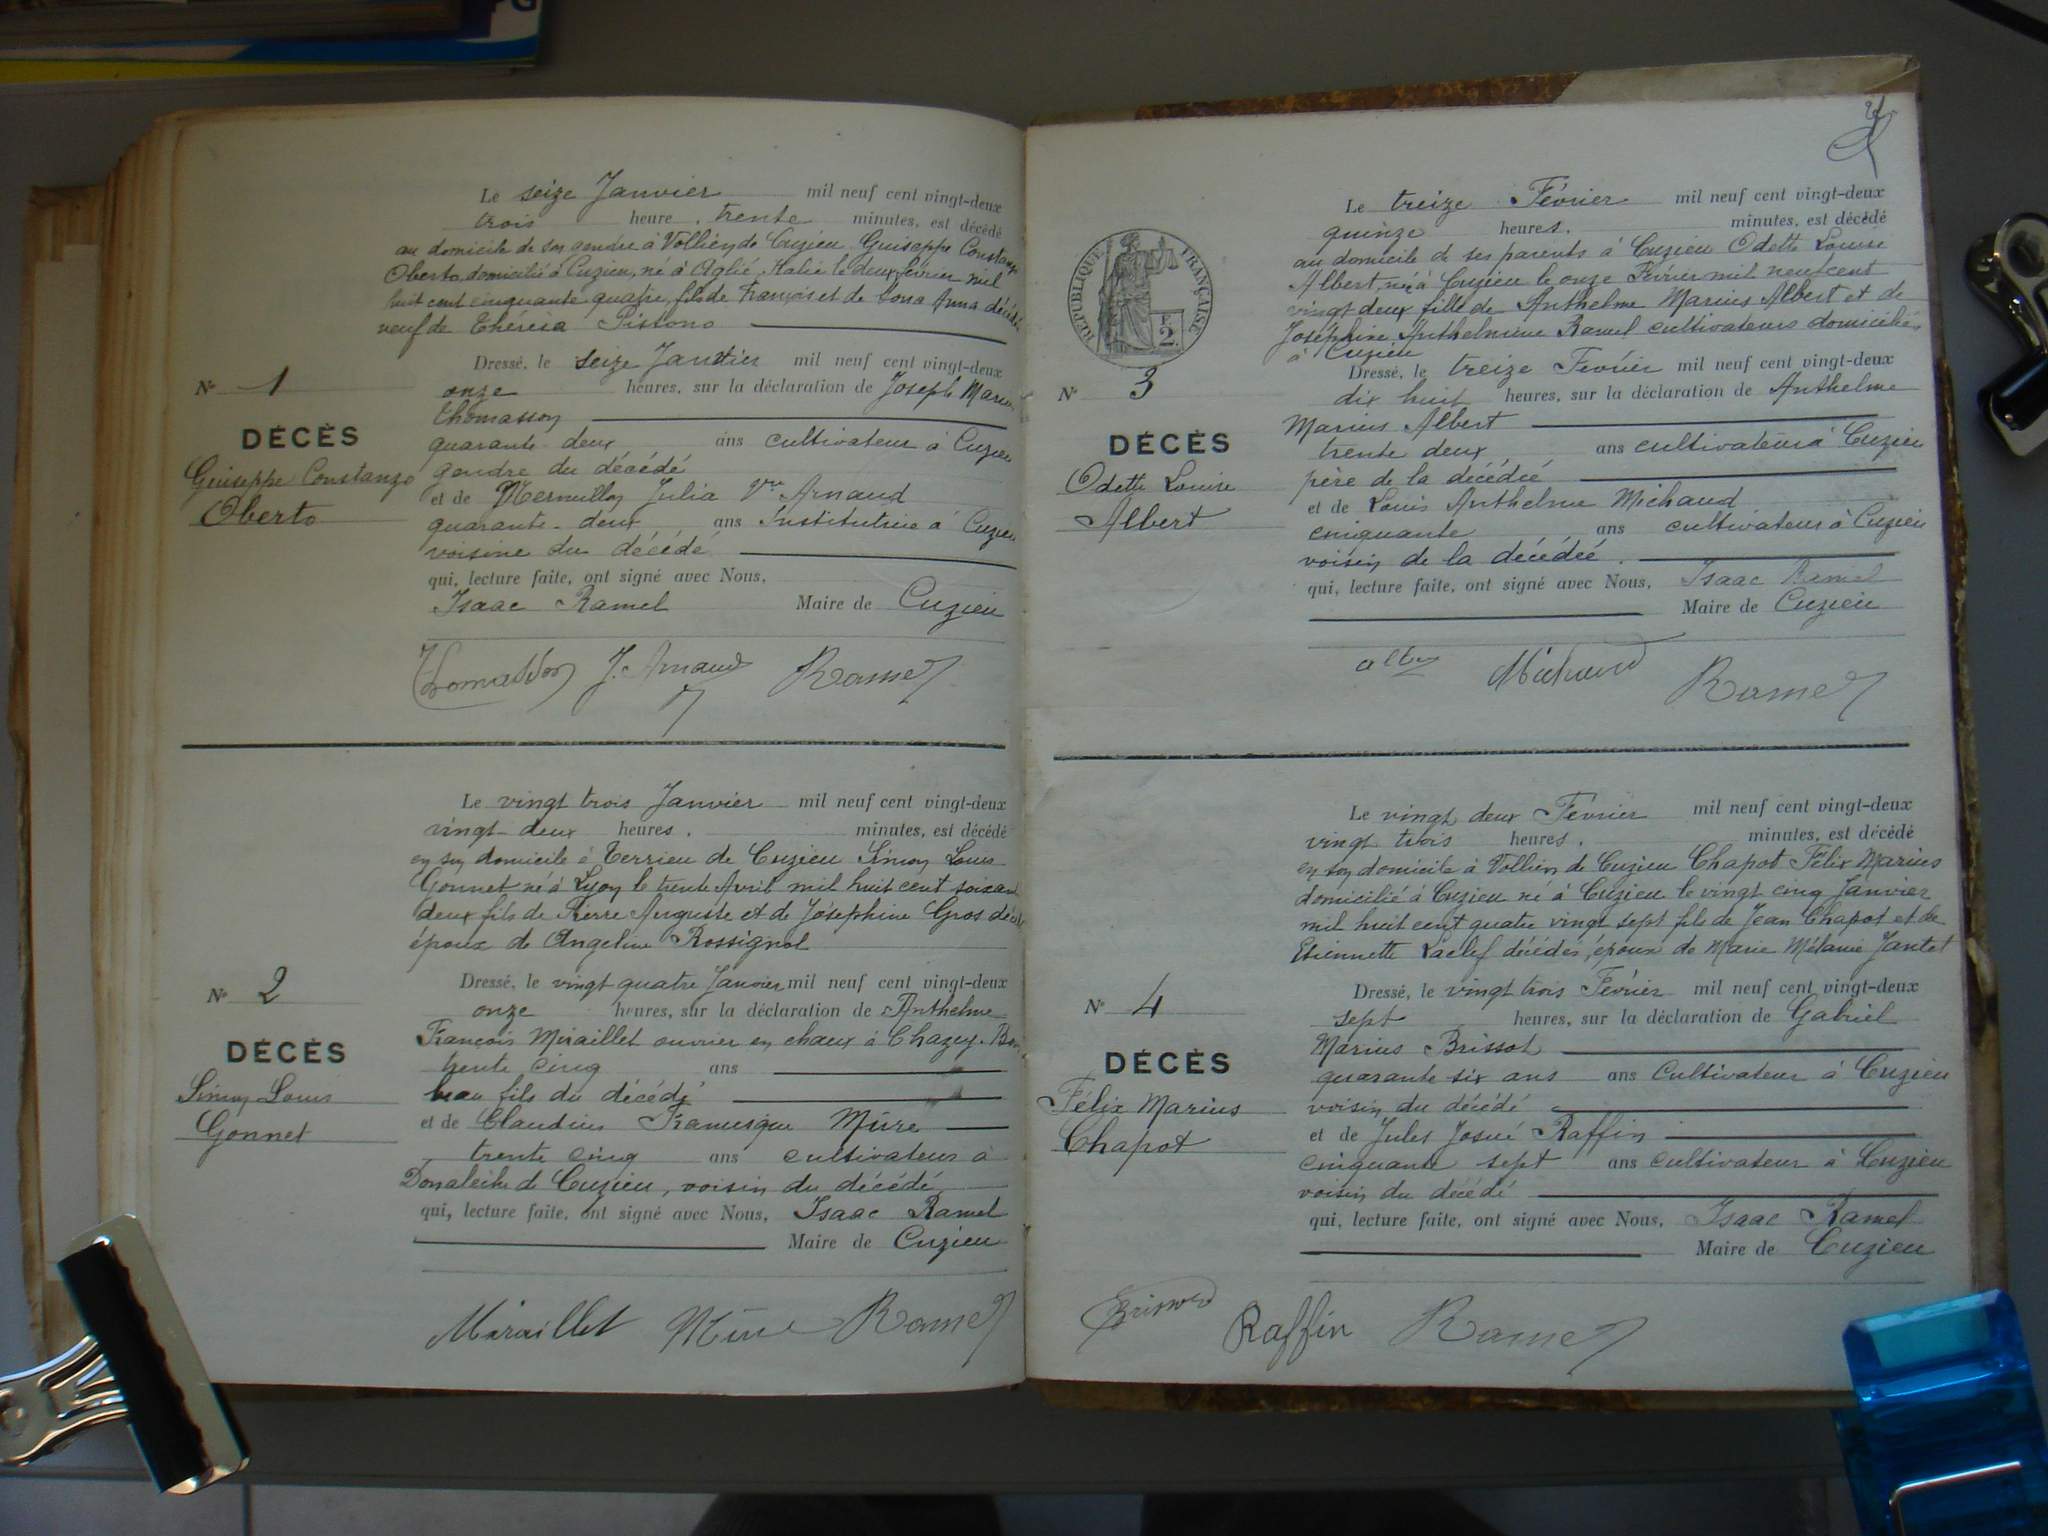 Le seize Janvier mil neuf cent vingt-deux
trois heure, trente minutes, est décédé
au domicile de son gendre à Vollien de Cuzieu Guiseppe Constanzo
Oberto domicilié à Cuzieu, né à Aglié, Italie le deux février mil
huit cent cinquante quatre, fils de François et de Anna décédés
veuf de Thérèsa Pistono
Dressé, le seize Janvier mil neuf cent vingt-deux
onze heures, sur la déclaration de Joseph Marius
Thomasson
quarante deux ans cultivateur à Cuzieu
gendre du décédé
et de Mermillon Julia Vve Arnaud
quarante-deux ans Institutrice à Cuzieu
voisine du décédé
qui, lecture faite, ont signé avec Nous,
Isaac Ramel Maire de Cuzieu
No 1
DÉCÈS
Guiseppe Constanzo
Oberto
Thomasson J. Arnaud Ramel
Le vingt trois Janvier mil neuf cent vingt-deux
vingt-deux heures, minutes, est décédé
en son domicile à Terrieu de Cuzieu Simon Louis
Gonnet né à Lyon le trente Avril mil huit cent soixante
deux fils de Pierre Auguste et de Joséphine Gros décédés
époux de Angeline Rossignol
Dressé, le vingt quatre Janvier mil neuf cent vingt-deux
onze heures, sur la déclaration de Anthelme
François Miraillet ouvrier en chaux à Chazey-Bons
trente cinq ans
beau fils du décédé
et de Claudius Francisque Mure
trente cinq ans cultivateur à
de Cuzieu, voisin du décédé
qui, lecture faite, ont signé avec Nous, Isaac Ramel
Maire de Cuzieu
No 2
DÉCÈS
Simon Louis
Gonnet
Miraillet Mure Ramel
2
RÉPUBLIQUE FRANÇAISE
2
Le treize Février mil neuf cent vingt-deux
quinze heures, minutes, est décédé
au domicile de ses parents à Cuzieu Odette Louise
Albert, né à Cuzieu le onze Février mil neuf cent
vingt deux fille de Anthelme Marius Albert et de
Joséphine Anthelmine Ramel cultivateurs domiciliés
à Cuzieu
Dressé, le treize Février mil neuf cent vingt-deux
dix huit heures, sur la déclaration de Anthelme
Marius Albert
trente deux ans cultivateur à Cuzieu
père de la décédée
et de Louis Anthelme Michaud
cinquante ans cultivateur à Cuzieu
voisin de la décédée
qui, lecture faite, ont signé avec Nous, Isaac Ramel
Maire de Cuzieu
No 3
DÉCÈS
Odette Louise
Albert
Michaud Ramel
Le vingt deux Février mil neuf cent vingt-deux
vingt trois heures, minutes, est décédé
en son domicile à Vollien de Cuzieu Chapot Félix Marius
domicilié à Cuzieu né à Cuzieu le vingt cinq Janvier
mil huit cent quatre vingt sept fils de Jean Chapot et de
Etiennette Laclef décédés, époux de Marie Mélanie Jantet
Dressé, le vingt trois Février mil neuf cent vingt-deux
sept heures, sur la déclaration de Gabriel
Marius Brissot
quarante six ans ans Cultivateur à Cuzieu
voisin du décédé
et de Jules Josué Raffin
cinquante sept ans cultivateur à Cuzieu
voisin du décédé
qui, lecture faite, ont signé avec Nous, Isaac Ramel
Maire de Cuzieu
No 4
DÉCÈS
Félix Marius
Chapot
Raffin Ramel